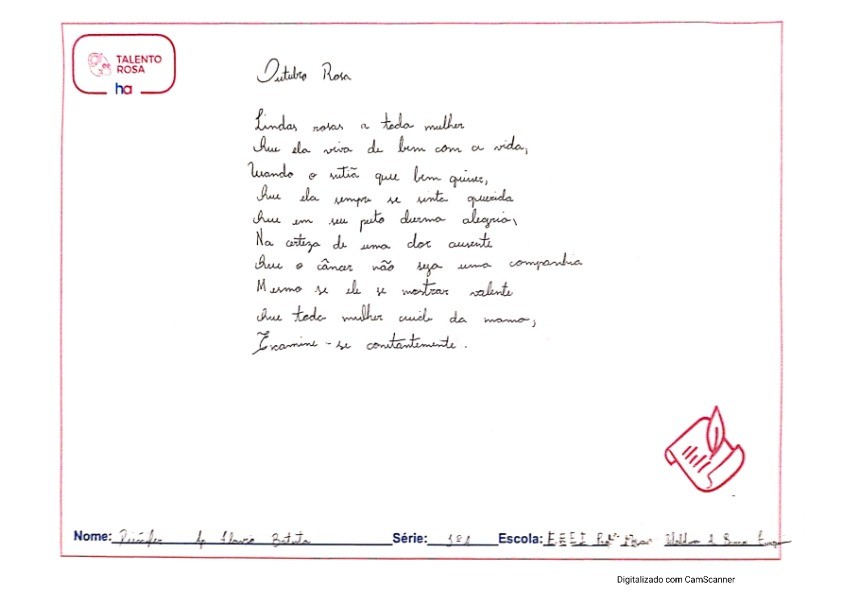 TALENTO
ROSA
ha
Outubro Rosa
Lindas rosas a toda mulher
Que ela viva de bem com a vida,
Usando o sutiã que bem quiser,
Que ela sempre se sinta querida
Que em seu peito durma alegria,
Na certeza de uma dor ausente
Que o câncer não seja uma companhia
Mesmo se ele se mostrar valente
Que toda mulher cuide da mama,
Examine-se constantemente.
Nome: Batista Série: Escola: EEEI Profª
Digitalizado com CamScanner